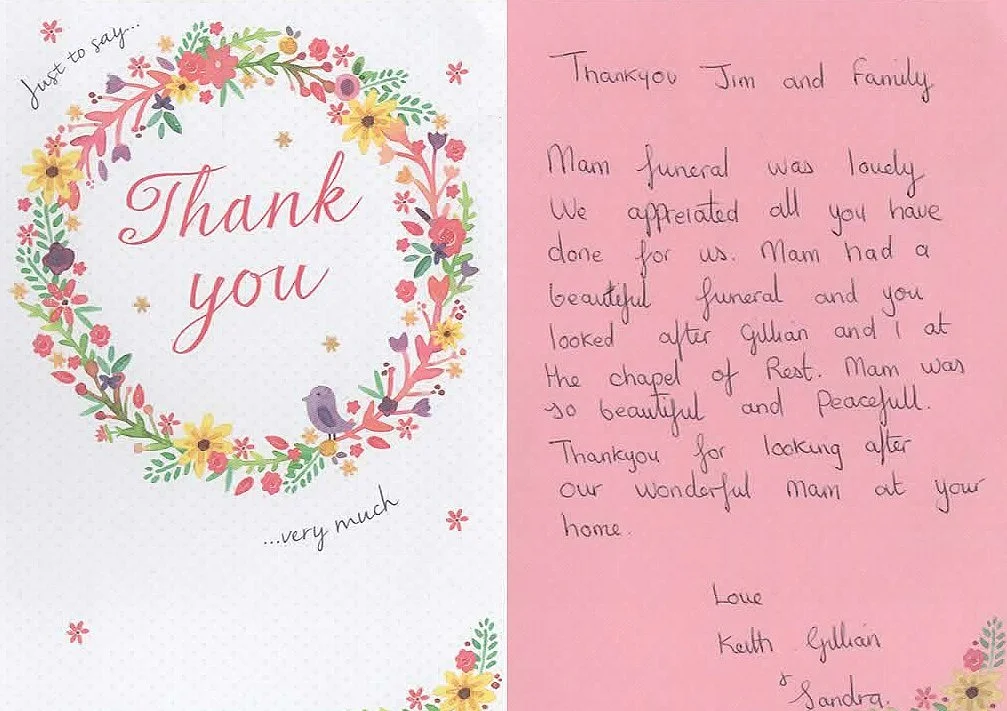 Just to say...
Thank
you
...very much
Thankyou Jim and family
Mam funeral was lovely
We appreiated all you have
done for us. Mam had a
beautiful funeral and you
looked after Gillian and I at
the chapel of Rest. Mam was
so beautiful and Peacefull.
Thankyou for looking after
our wonderful Mam at your
home.
Love
Keith Gillian
& Sandra.